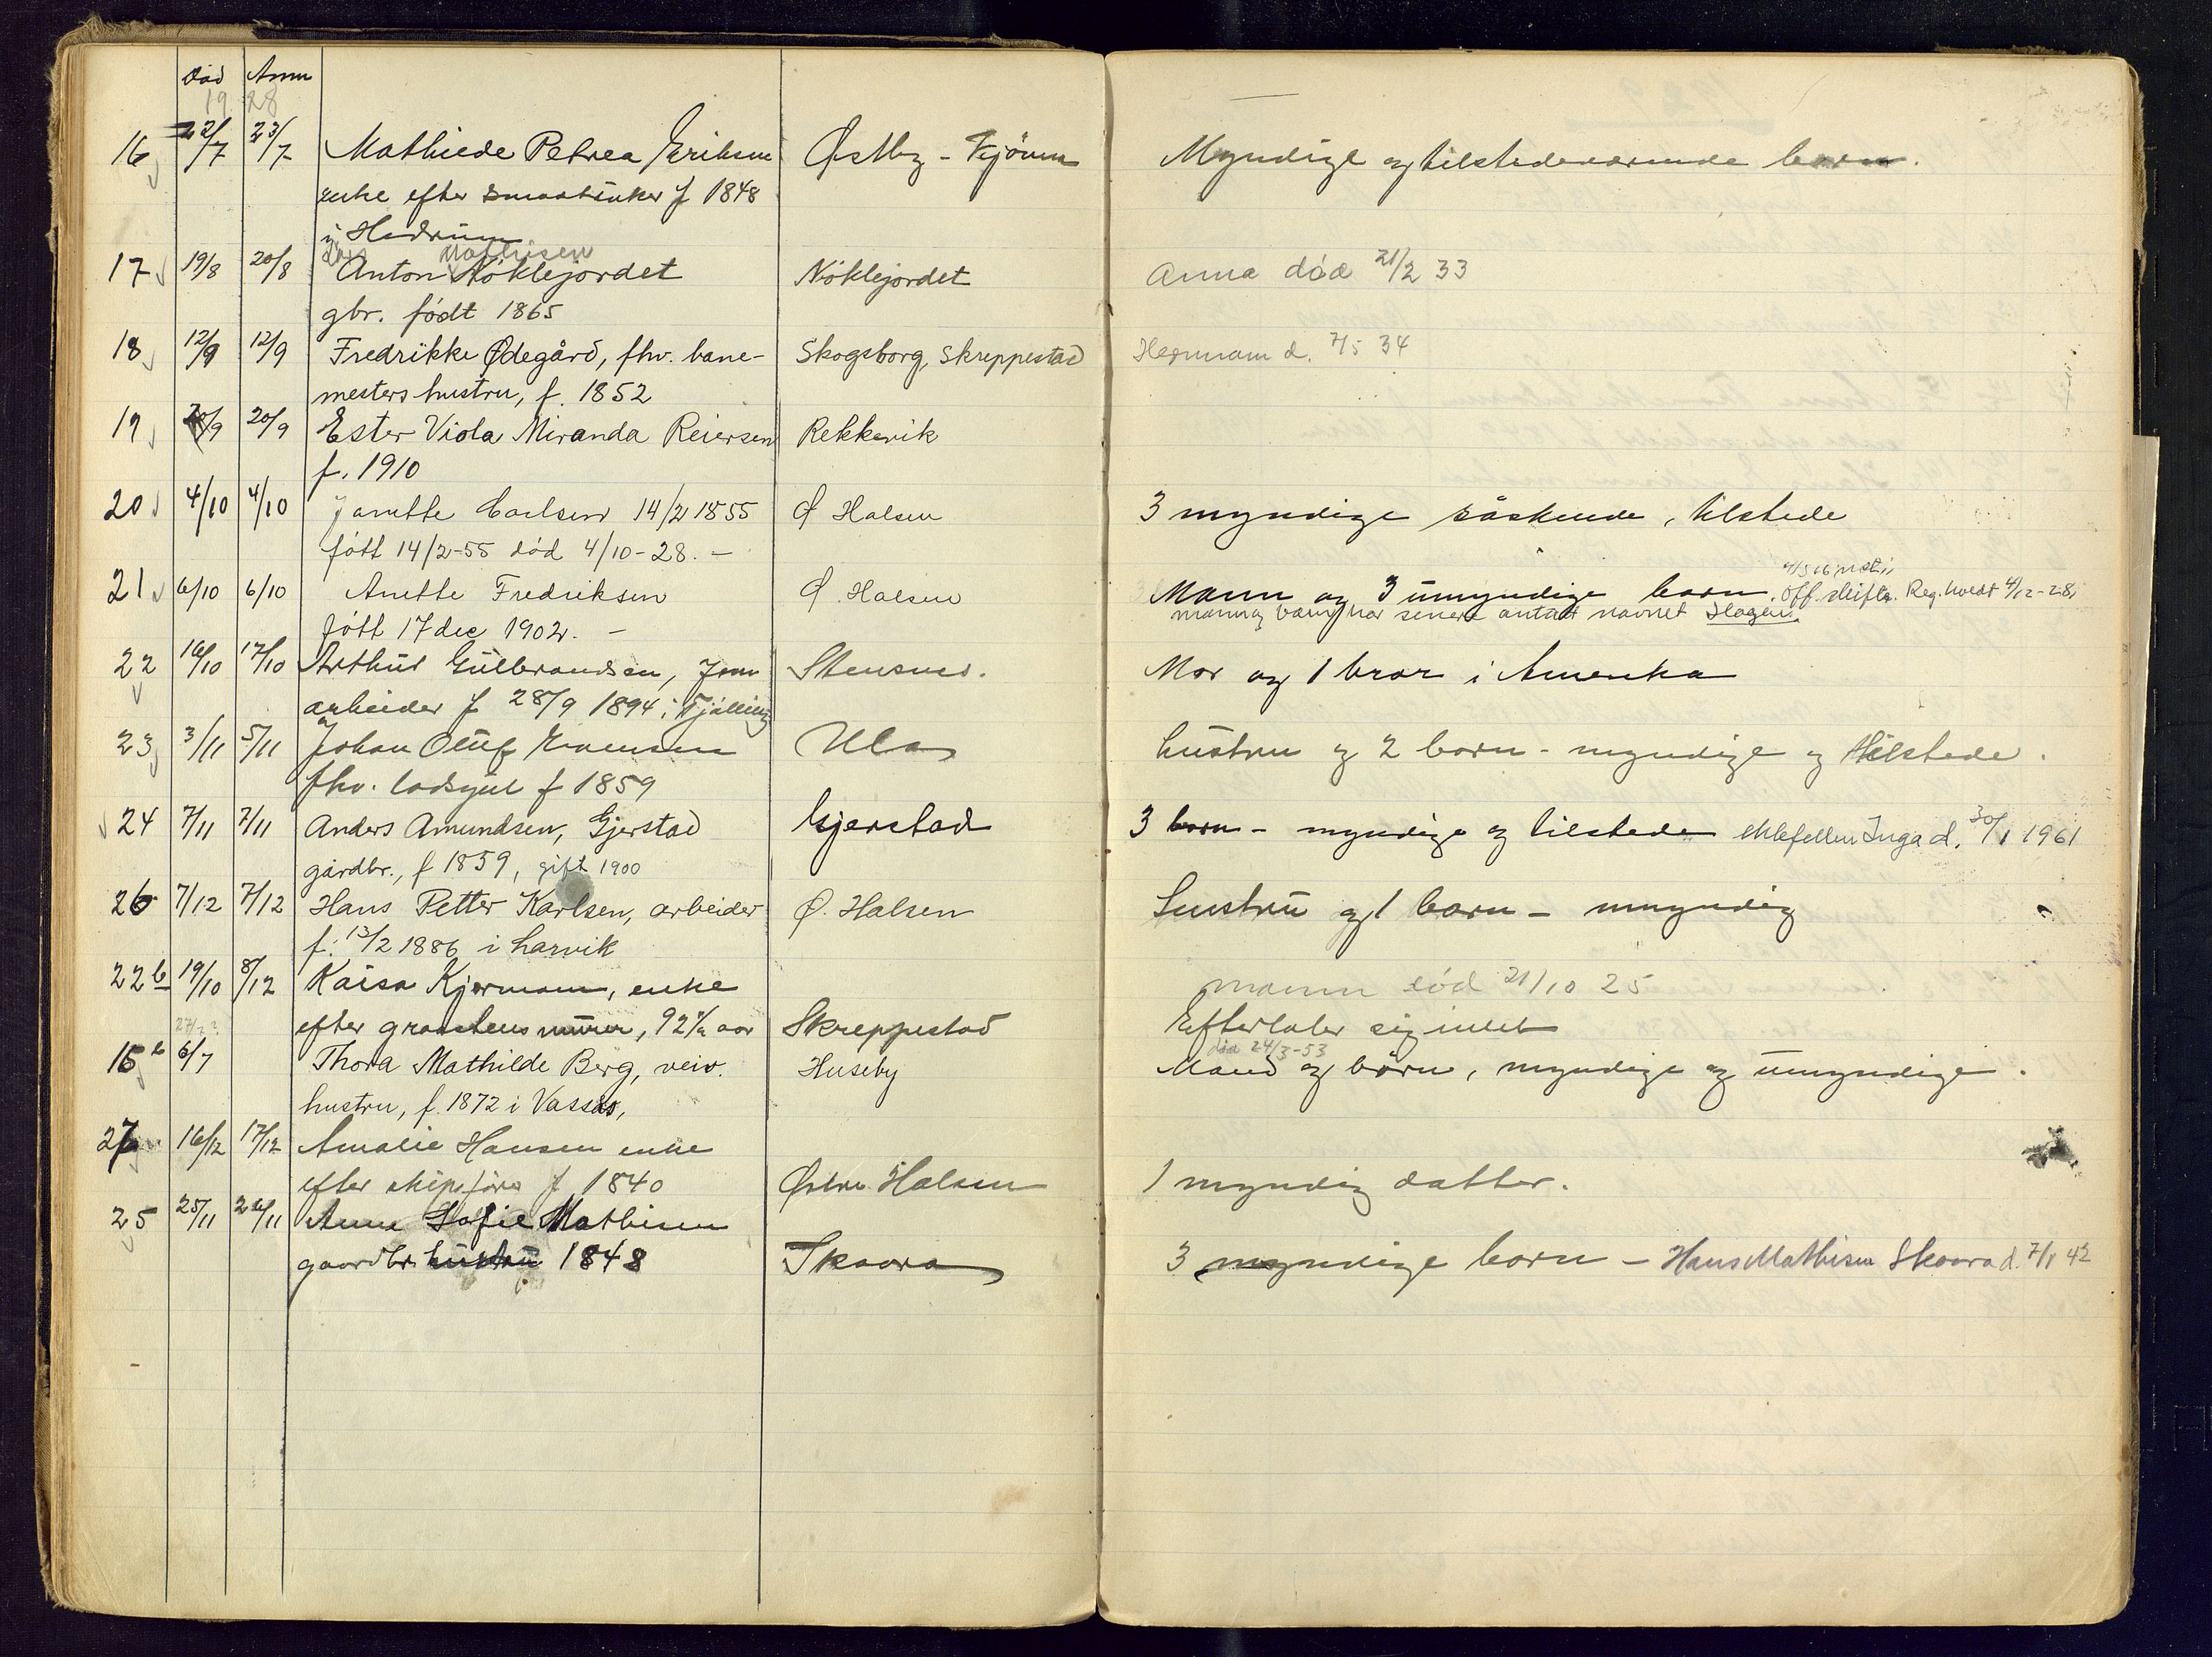 Død Anm
19 28
16 22/7 23/7 Mathilde Petrea Eriksen Østby - Tjömm Myndige og tilstedeværende barn.
enke efter smaabruker f 1848
i Hedrum
Lars Mathisen
17 19/8 20/8 Anton Nöklejordet Nöklejordet Anna död 21/2 33
gbr. födt 1865
18 12/9 12/9 Fredrikke Ødegård, fhv. bane- Skogsborg, Skreppestad Hermann d. 7/5 34
mesters hustru, f. 1852
19 20/9 20/9 Ester Viola Miranda Reiersen Rekkevik
f. 1910
20 4/10 4/10 Janette Carlsen 14/2 1855 Ø Halsen 3 myndige söskende, tilstede
fött 14/2-55 död 4/10-28. -
21 6/10 6/10 Anette Fredriksen Ø. Halsen Mann og 3 umyndige barn. Off. skifte. Reg. holdt 4/12-28,
fött 17 dec 1902. - mann og barn har senere antatt navnet Hagen.
22 16/10 17/10 Arthur Gulbrandsen, Jern Stensnes. Mor og 1 bror i Amerika
arbeider f 28/9 1894 i Tjölling
23 3/11 5/11 Johan Oluf Evensen Ula hustru og 2 barn - myndige og tilstede.
fhv. lods gul f 1859
24 7/11 7/11 Anders Amundsen, Gjerstad Gjerstad 3 barn - myndige og tilstede Ektefellen Inga d. 30/1 1961
gårdbr., f 1859, gift 1900
26 7/12 7/12 Hans Petter Karlsen, arbeider Ø. Halsen hustru og 1 barn - umyndig
f. 13/2 1886 i Larvik
22 b 19/10 8/12 Kaisa Kjermann, enke mann död 21/10 25
efter graastens murer, 92 1/2 aar Skreppestad Efterlater sig intet
15 b 6/7 Thora Mathilde Berg, veiv. Huseby død 24/3-53 Mand og börn, myndige og umyndige.
hustru, f. 1872 i Vassås,
27 16/12 17/12 Amalie Hansen enke
efter skipsförer f 1840 Østre Halsen 1 myndig datter.
25 25/11 26/11 Anne Sofie Mathisen
gaardbr. hustru 1848 Skaara 3 myndige barn - Hans Mathisen Skaara d. 7/1 42